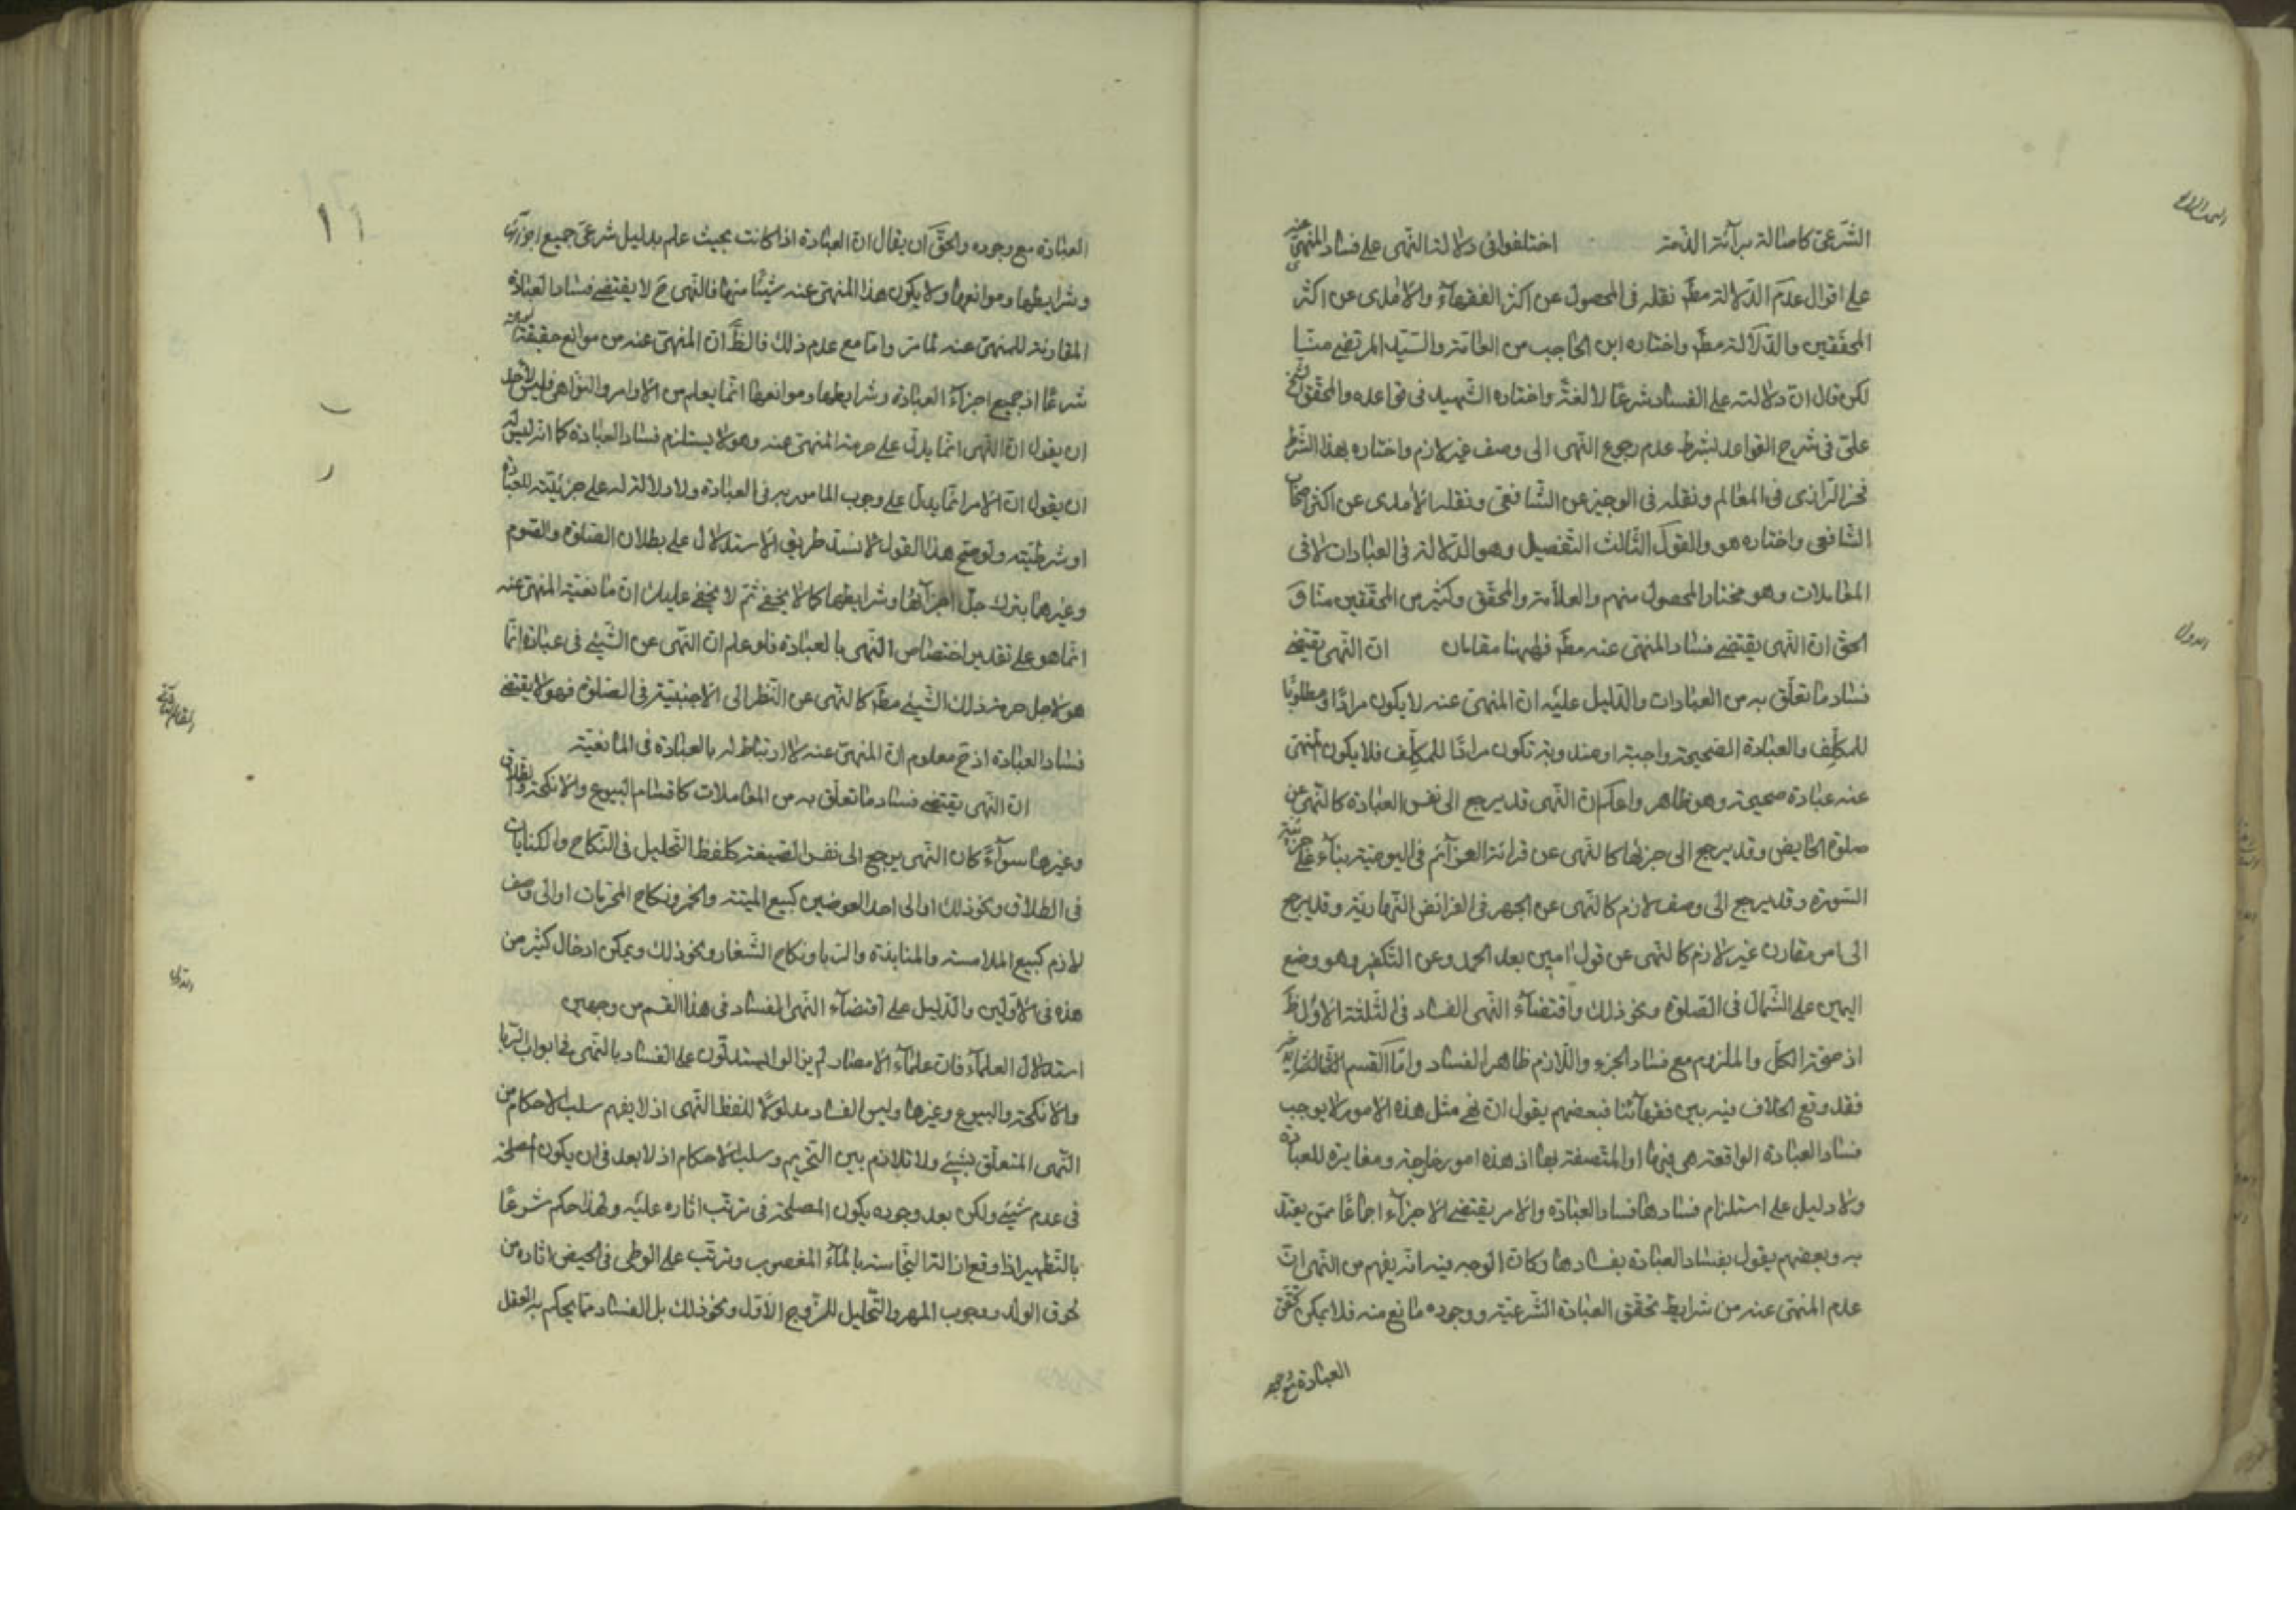 الشّرعىّ كاصالة برآئة الذّمة اختلفوا فى دلالة النّهى على فساد المنهىّ عنه
على اقوال عدم الدّلالة مطّ نقله فى المحصول عن اكثر الفقهآء والامدى عن اكثر
المحقّقين والدّلالة مطّ واختاره ابن الحاجب من العامّة والسّيّد المرتضى منّا
لكن قال انّ دلالته على الفساد شرعًا لا لغة واختاره الشّهيد فى قواعده والمحقّق الشّيخ
علىّ فى شرح القواعد بشرط عدم رجوع النّهى الى وصف غير لازم واختاره بهذا الشّرط
فخر الرّازى فى المعالم ونقله فى الوجيز عن الشّافعى ونقله الامدى عن اكثر اصحاب
الشّافعى واختاره هو والقول الثّالث التّفصيل وهو الدّلالة فى العبادات لا فى
المعاملات وهو مختار المحصول منهم والعلاّمة والمحقّق وكثير من المحقّقين منّا و
الحقّ انّ النّهى يقتضى فساد المنهىّ عنه مطّ فههنا مقامان انّ النّهى يقتضى
فساد ما تعلّق به من العبادات والدّليل عليه انّ المنهىّ عنه لا يكون مرادًا ومطلوبًا
للمكلِّف والعبادة الصّحيحة واجبة او مندوبة تكون مرادًا للمكلِّف فلا يكون المنهىّ
عنه عبادة صحيحة وهو ظاهر واعلم انّ النّهى قد يرجع الى نفس العبادة كالنّهى عن
صلوة الحايض وقد يرجع الى جزئها كالنّهى عن قرائة العزآئم فى اليوميّة بناء على جزئيّة
السّورة وقد يرجع الى وصف لازم كالنّهى عن الجهر فى الفرائض النّهاريّة وقد يرجع
الى امر مقارن غير لازم كالنّهى عن قول امين بعد الحمد وعن التّكفير وهو وضع
اليمين على الشّمال فى الصّلوة ونحو ذلك واقتضآء النّهى الفساد فى الثّلثة الاوّل ظّ
اذ صحّة الكلّ والملزوم مع فساد الجزء واللّازم ظاهر الفساد وامّا القسم
فقد وقع الخلاف فيه بين فقهآئنا فبعضهم يقول انّ نحو مثل هذه الامور لا يوجب
فساد العبادة الواقعة هى فيها او المتّصفة بها اذ هذه امور خارجة ومغايرة للعبادة
ولا دليل على استلزام فسادها فساد العبادة والامر يقتضى الاجزآء اجماعًا ممّن يعتدّ
به وبعضهم يقول بفساد العبادة بفسادها وكانّ الوجه فيه انّه يفهم من النّهى انّ
عدم المنهىّ عنه من شرايط تحقّق العبادة الشّرعيّة ووجوده مانع منه فلا يمكن تحقّق
العبادة مع وجوده
العبادة مع وجوده والحقّ ان يقال انّ العبادة اذا كانت بحيث علم بدليل شرعىّ جميع اجزآئها
وشرايطها وموانعها ولا يكون هذا المنهىّ عنه شيئًا منها فالنّهى ح لا يقتضى فساد العبادة
المقارنة للمنهىّ عنه لما مرّ وامّا مع عدم ذلك فالظّ انّ المنهىّ عنه من موانع حقيقة العبادة
شرعًا اذ جميع اجزآء العبادة وشرايطها وموانعها انّما يعلم من الاوامر والنّواهى فليس لاحد
ان يقول انّ النّهى انّما يدلّ على حرمة المنهىّ عنه وهو لا يستلزم فساد العبادة كما انّه ليس له
ان يقول انّ الامر انّما يدلّ على وجوب المامور به فى العبادة ولا دلالة له على جزئيّته للعبادة
او شرطيّته ولو صحّ هذا القول لانسدّ طريق الاستدلال على بطلان الصّلوة والصّوم
وغيرهما بترك جلّ اجزآئها وشرايطها كما لا يخفى ثمّ لا يخفى عليك انّ مانعيّة المنهىّ عنه
انّما هو على تقدير اختصاص النّهى بالعبادة فلو علم انّ النّهى عن الشّيئ فى عبادة انّما
هو لاجل حرمة ذلك الشّيئ مطّ كالنّهى عن النّظر الى الاجنبيّة فى الصّلوة فهو لا يقتضى
فساد العبادة اذ ح معلوم انّ المنهىّ عنه لا ارتباط له بالعبادة فى المانعيّة
المقام الثّانى
انّ النّهى يقتضى فساد ما تعلّق به من المعاملات كاقسام البيوع والانكحة والطّلاق
وغيرها سوآءً كان النّهى يرجع الى نفس الصّيغة كلفظ التّحليل فى النّكاح والكنايات
فى الطّلاق ونحو ذلك او الى احد العوضين كبيع الميتة والخمر ونكاح المحرّمات او الى وصف
لازم كبيع الملامسة والمنابذة والرّبا ونكاح الشّغار ونحو ذلك ويمكن ادخال كثير من
هذه فى الاوّلين والدّليل على اقتضآء النّهى الفساد فى هذا القسم من وجهين
استدلال العلمآء فانّ علمآء الامصار لم يزالوا يستدلّون على الفساد بالنّهى فى ابواب الرّبا
والانكحة والبيوع وغيرها وليس الفساد مدلولًا للفظ النّهى اذ لا يفهم سلب الاحكام من
النّهى المتعلّق بشيئ ولا تلازم بين التّحريم وسلب الاحكام اذ لا بعد فى ان يكون المصلحة
فى عدم شيئ ولكن بعد وجوده يكون المصلحة فى ترتّب اثاره عليه ولهذا حكم شرعًا
بالتّطهير اذا وقع ازالة النّجاسة بالمآء المغصوب وترتّب على الوطى فى الحيض اثاره من
لحوق الولد ووجوب المهر والتّحليل للزّوج الاوّل ونحو ذلك بل الفساد ممّا يحكم به العقل